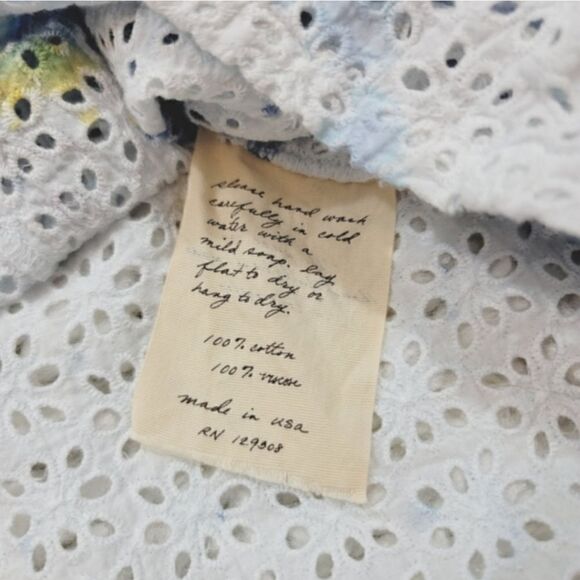 please hand wash
carefully in cold
water with a
mild soap. lay
flat to dry or
hang to dry.
100% cotton
100% viscose
made in usa
RN 129308